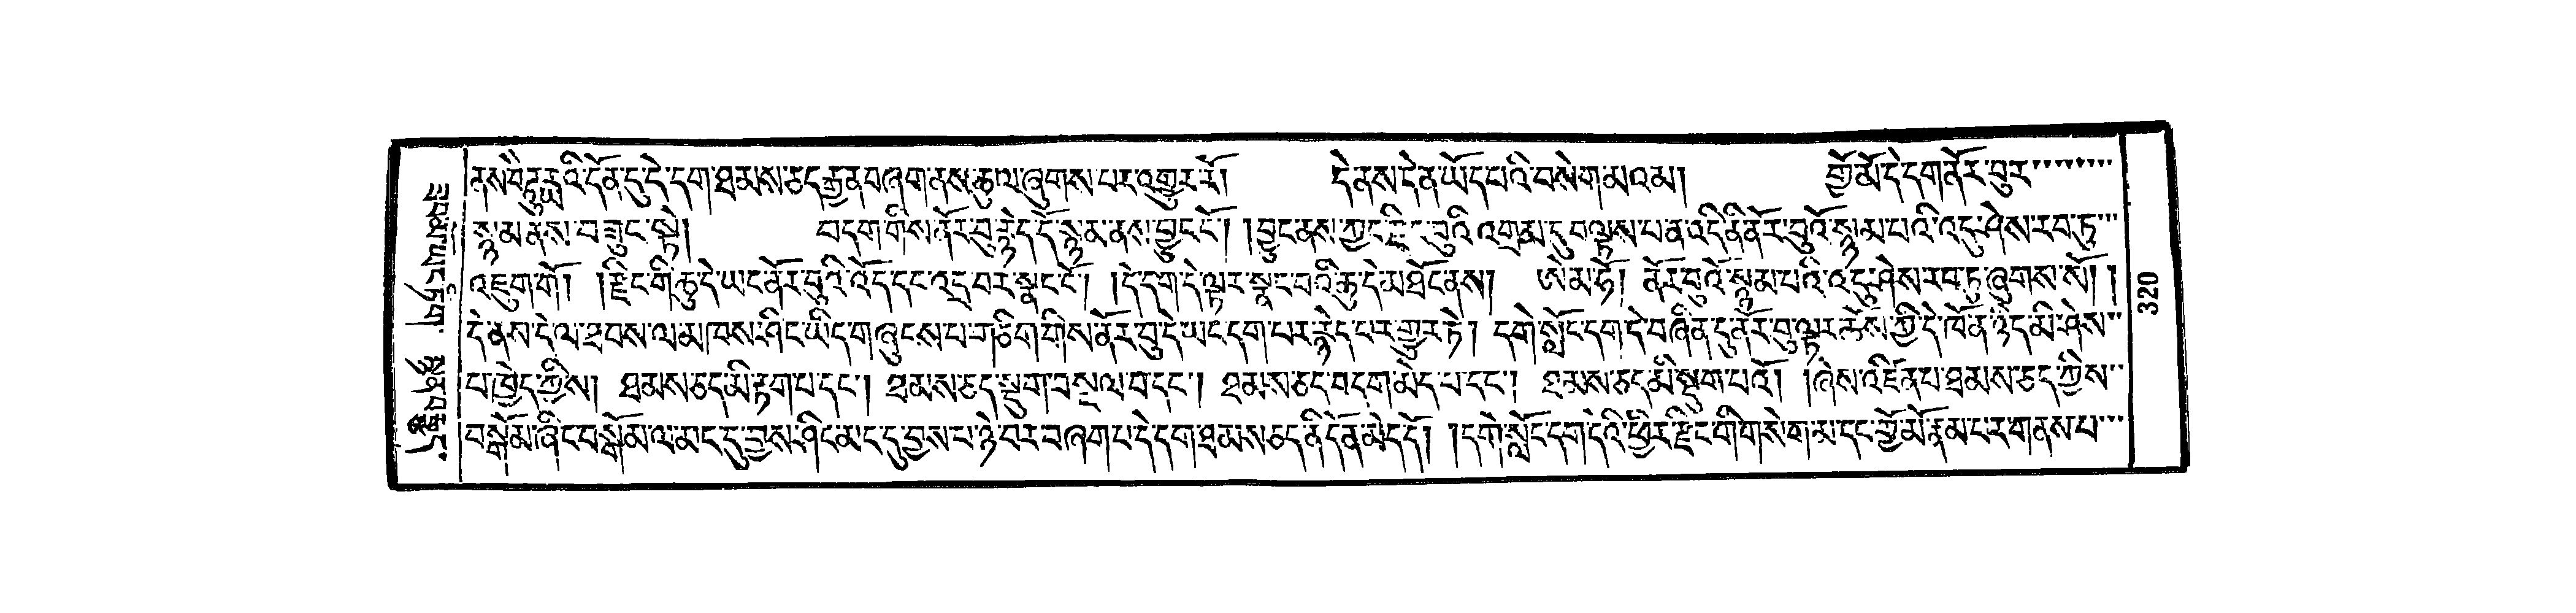 ནས་བཻ་ཌཱུརྻའི་དོན་དུ་དེ་དག་ཐམས་ཅད་རྒྱན་བཞག་ནས་ཆུ་ལ་ཞུགས་པར་འགྱུར་རོ། དེ་ནས་དེ་ན་ཡོད་པའི་གསེག་མའམ། གྱོ་མོ་དེ་དག་ནོར་བུར་
སྙམ་ནས་བཟུང་སྟེ། བདག་གིས་ནོར་བུ་རྙེད་དོ་སྙམ་ནས་བྱུང་ངོ་། །བྱུང་ནས་ཀྱང་རྫིང་བུའི་འགྲམ་དུ་བལྟས་པ་ན་འདི་ནི་ནོར་བུའོ་སྙམ་པའི་འདུ་ཤེས་རབ་ཏུ་
འཇུག་གོ། །རྫིང་གི་ཆུ་དེ་ཡང་ནོར་བུའི་འོད་དང་འདྲ་བར་སྣང་ངོ་། །དེ་དག་དེ་ལྟར་སྣང་བའི་ཆུ་དེ་མཐོང་ནས། ཨེ་མ་ཧོ། ནོར་བུའོ་སྙམ་པའི་འདུ་ཤེས་རབ་ཏུ་ཞུགས་སོ། །
དེ་ནས་དེ་ལ་ཐབས་ལ་མཁས་ཤིང་ཡིད་གཞུངས་པ་གཅིག་གིས་ནོར་བུ་དེ་ཡང་དག་པར་རྙེད་པར་གྱུར་ཏེ། དགེ་སློང་དག་དེ་བཞིན་དུ་ནོར་བུ་ལྟར་ཆོས་ཀྱི་དེ་ཁོ་ན་ཉིད་མི་ཤེས་
པ་ཁྱེད་ཀྱིས། ཐམས་ཅད་མི་རྟག་པ་དང་། ཐམས་ཅད་སྡུག་བསྔལ་བ་དང་། ཐམས་ཅད་བདག་མེད་པ་དང་། ཐམས་ཅད་མི་སྡུག་པའོ། །ཞེས་འཛིན་པ་ཐམས་ཅད་ཀྱིས་
བསྒོམ་ཞིང་བསྒོམ་ལ་མང་དུ་བྱས་ཤིང་མང་དུ་བྱས་པ་ཉེ་བར་བཞག་པ་དེ་དག་ཐམས་ཅད་ནི་དོན་མེད་དོ། །དགེ་སློང་དག་དེའི་ཕྱིར་རྫིང་གི་གསེག་མ་དང་གྱོ་མོ་རྣམ་པར་གནས་པ་